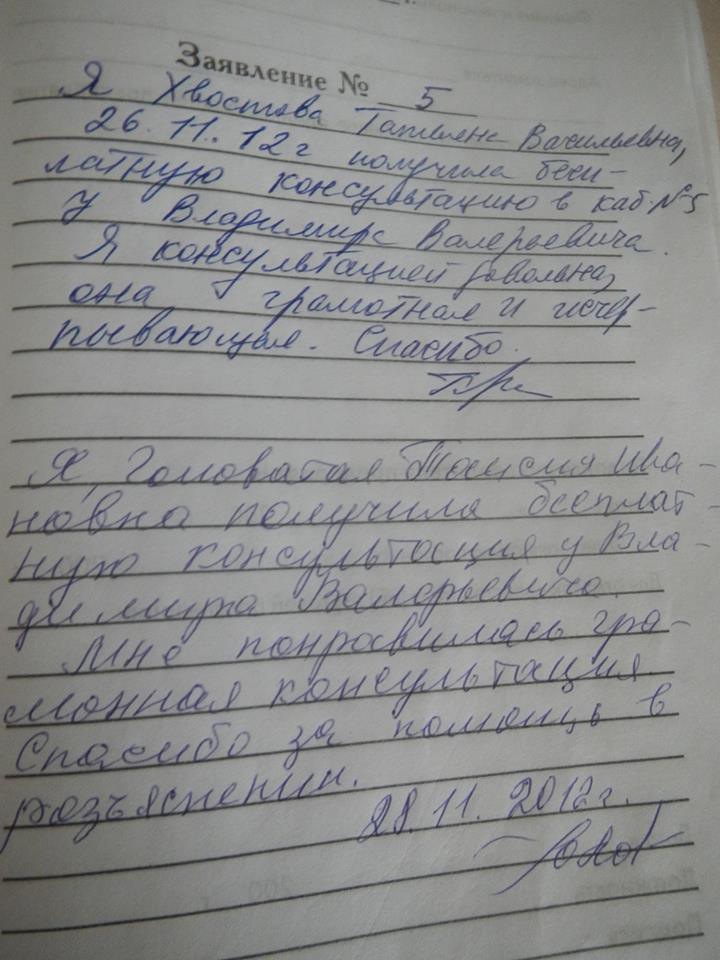 Заявление № 5
Я Хвостова Татьяна Васильевна,
26.11.12г получила бесп-
латную консультацию в каб.№5
у Владимира Валерьевича.
Я консультацией довольна,
она грамотная и исчер-
пывающая. Спасибо.
Я, Головатая Таисия Ива-
новна получила бесплат-
ную консультация у Вла-
димира Валерьевича.
Мне понравилась гра-
монная консультация.
Спасибо за помощь в
разъяснении.
28.11.2012г.